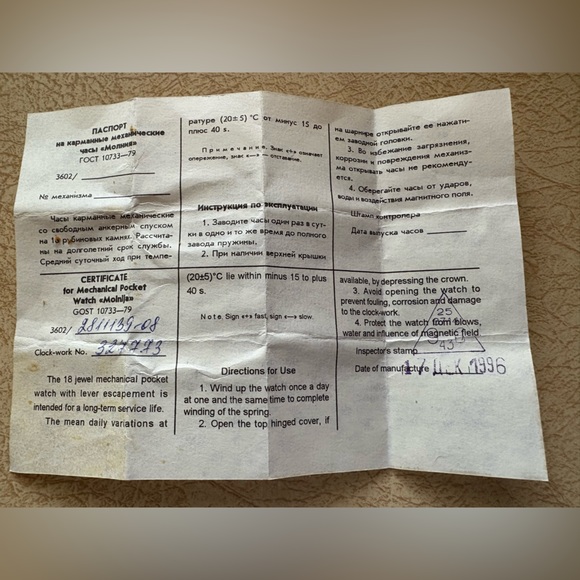 ПАСПОРТ
на карманные механические
часы «Молния»
ГОСТ 10733—79
3602/
№ механизма
Часы карманные механические
со свободным анкерным спуском
на 18 рубиновых камнях. Рассчита-
ны на долголетний срок службы.
Средний суточный ход при темпе-
ратуре (20±5) °С от минус 15 до
плюс 40 s.
Примечание. Знак «+» означает
опережение, знак «—» — отставание.
Инструкция по эксплуатации
1. Заводите часы один раз в сут-
ки в одно и то же время до полного
завода пружины.
2. При наличии верхней крышки
на шарнире открывайте ее нажати-
ем заводной головки.
3. Во избежание загрязнения,
коррозии и повреждения механиз-
ма открывать часы не рекоменду-
ется.
4. Оберегайте часы от ударов,
воды и воздействия магнитного поля.
Штамп контролера
Дата выпуска часов
CERTIFICATE
for Mechanical Pocket
Watch «Molnija»
GOST 10733—79
3602/ 2811139-08
Clock-work No. 327773
The 18 jewel mechanical pocket
watch with lever escapement is
intended for a long-term service life.
The mean daily variations at
(20±5)°C lie within minus 15 to plus
40 s.
Note. Sign «+» fast, sign «—» slow.
Directions for Use
1. Wind up the watch once a day
at one and the same time to complete
winding of the spring.
2. Open the top hinged cover, if
available, by depressing the crown.
3. Avoid opening the watch to
prevent fouling, corrosion and damage
to the clock-work.
4. Protect the watch from blows,
water and influence of magnetic field.
25
43
Inspector's stamp
Date of manufacture 17 ДЕК 1996